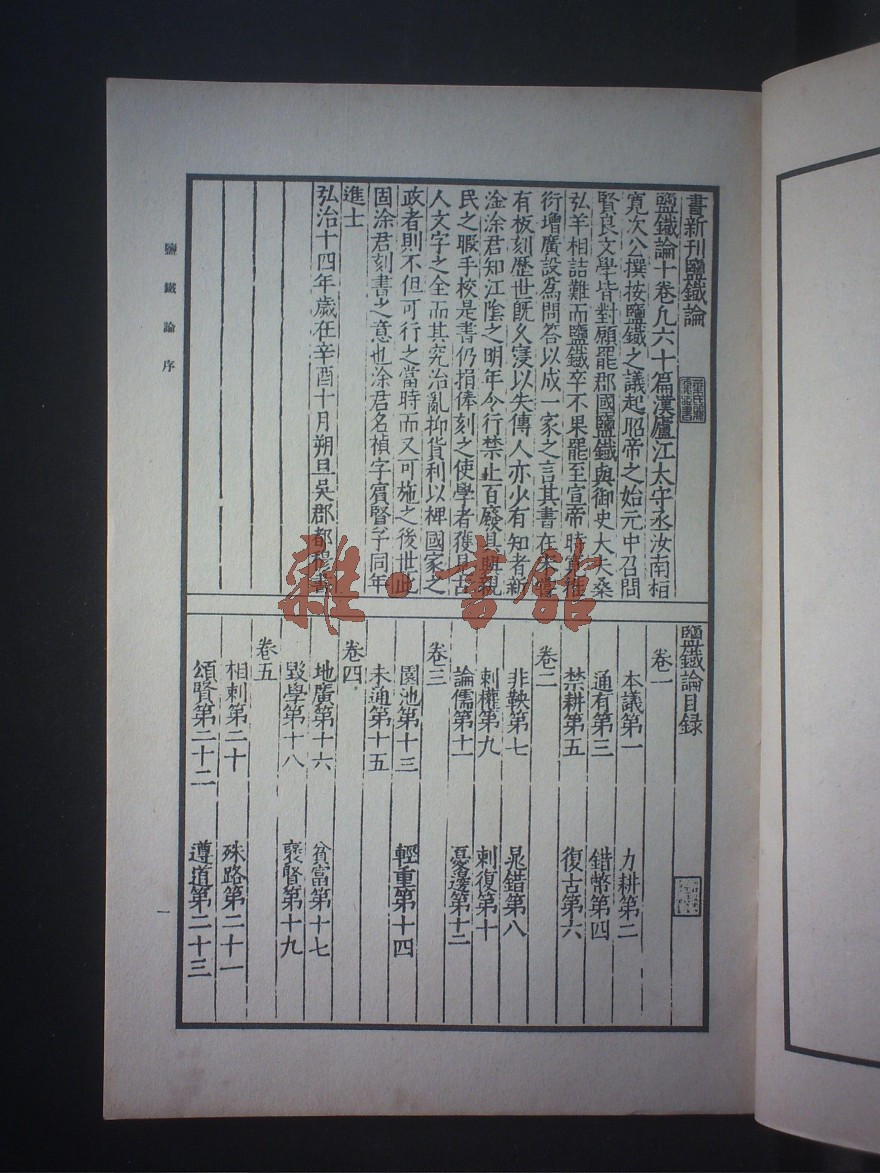 書新刊鹽鐵論
鹽鐵論十卷凡六十篇漢廬江太守丞汝南桓
寬次公撰按鹽鐵之議起昭帝之始元中召問
賢良文學皆對願罷郡國鹽鐵與御史大夫桑
弘羊相詰難而鹽鐵卒不果罷至宣帝時寬推
衍增廣設爲問答以成一家之言其書在宋嘗
有板刻歷世旣久寖以失傳人亦少有知者新
淦涂君知江陰之明年令行禁止百廢具興視
民之暇手校是書仍捐俸刻之使學者獲見古
人文字之全而其究治亂抑貨利以裨國家之
政者則不但可行之當時而又可施之後世此
固涂君刻書之意也涂君名禎字賓賢予同年
進士
弘治十四年歲在辛酉十月朔旦吳郡都穆書
鹽鐵論目録
卷一
本議第一 力耕第二
通有第三 錯幣第四
禁耕第五 復古第六
卷二
非鞅第七 晁錯第八
刺權第九 刺復第十
論儒第十一 憂邊第十二
卷三
園池第十三 輕重第十四
未通第十五
卷四
地廣第十六 貧富第十七
毀學第十八 褒賢第十九
卷五
相刺第二十 殊路第二十一
頌賢第二十二 遵道第二十三
鹽鐵論序
一
雜·書館